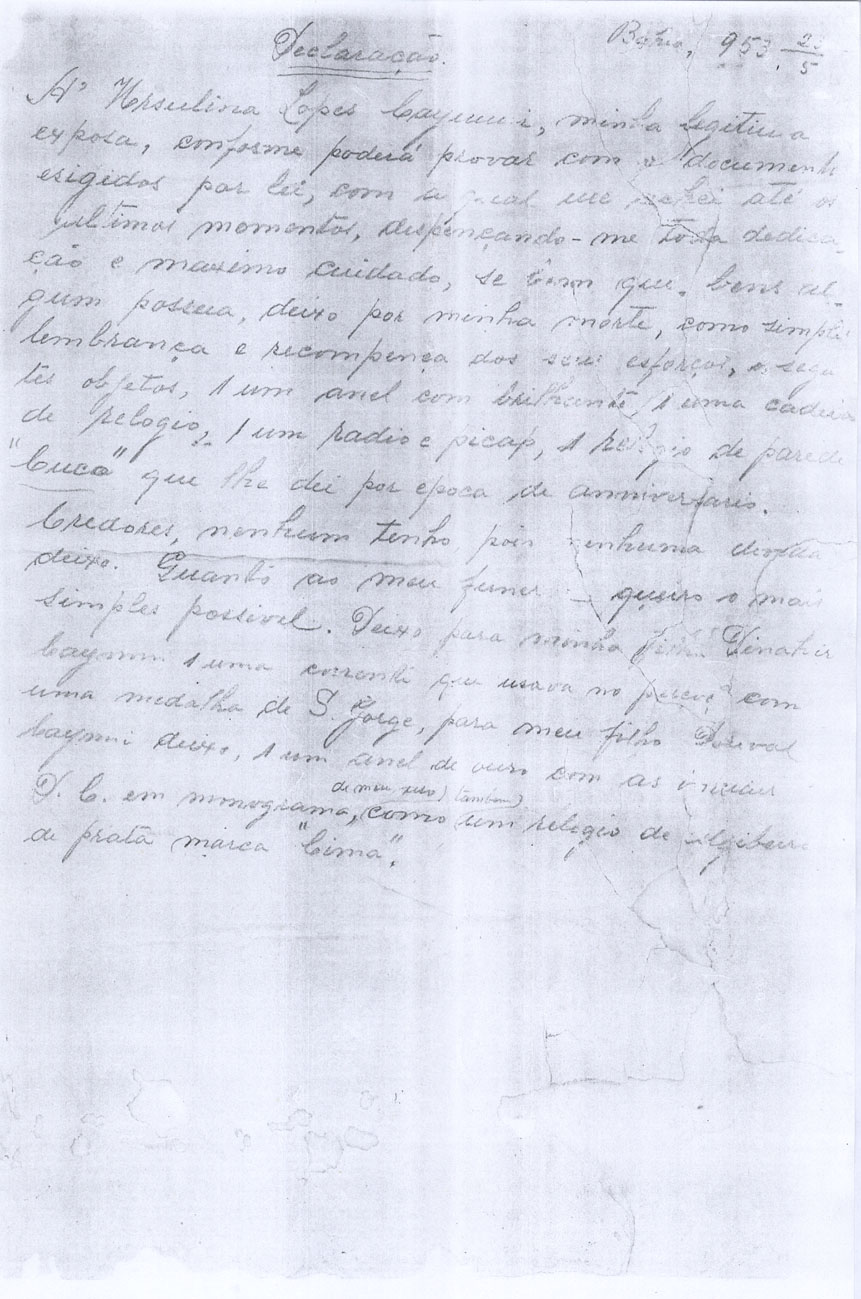 Declaração. Bahia, 953.
5
A' Ursulina Lopes Caymmi, minha legitima
exposa, conforme poderá provar com o documento
esigidos por lei, com a qual me até os
ultimos momentos, despençando-me toda dedica-
ção e maximo cuidado, se bem que bens al-
gum possua, deixo por minha morte, como simples
lembrança e recompença dos seus esforços, o segu
tes objetos, 1 um anel com brilhante, 1 uma cadeia
de relogio, 1 um radio e picap, 1 relogio de parede
"Cuco" que lhe dei por epoca de anniversario.
Credores, nenhum tenho, pois nenhuma divida
deixo. Quanto ao meu funer queiro o mais
simples possivel. Deixo para minha filha Dinahir
Caymmi 1 uma corrente que usava no com
uma medalha de S. Jorge, para meu filho Dorival
Caymmi deixo, 1 um anel de ouro com as iniciais
de meu uso) (tambem)
D. C. em monograma, como um relogio de algibeira
de prata marca "Cima".